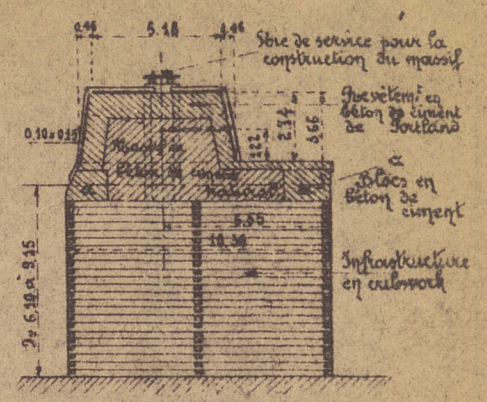 0.46 5.18 0.46
Voie de service pour la
construction du massif
Revêtem.t en
béton de ciment
de Portland
0,10 à 0.15
1.22
2.74
3.66
Massif en
béton de ciment
naturel
a
a
a
Blocs en
béton de
ciment
5.55
10.36
Infrastructure
en cribwork
De 6.10 à 9.15